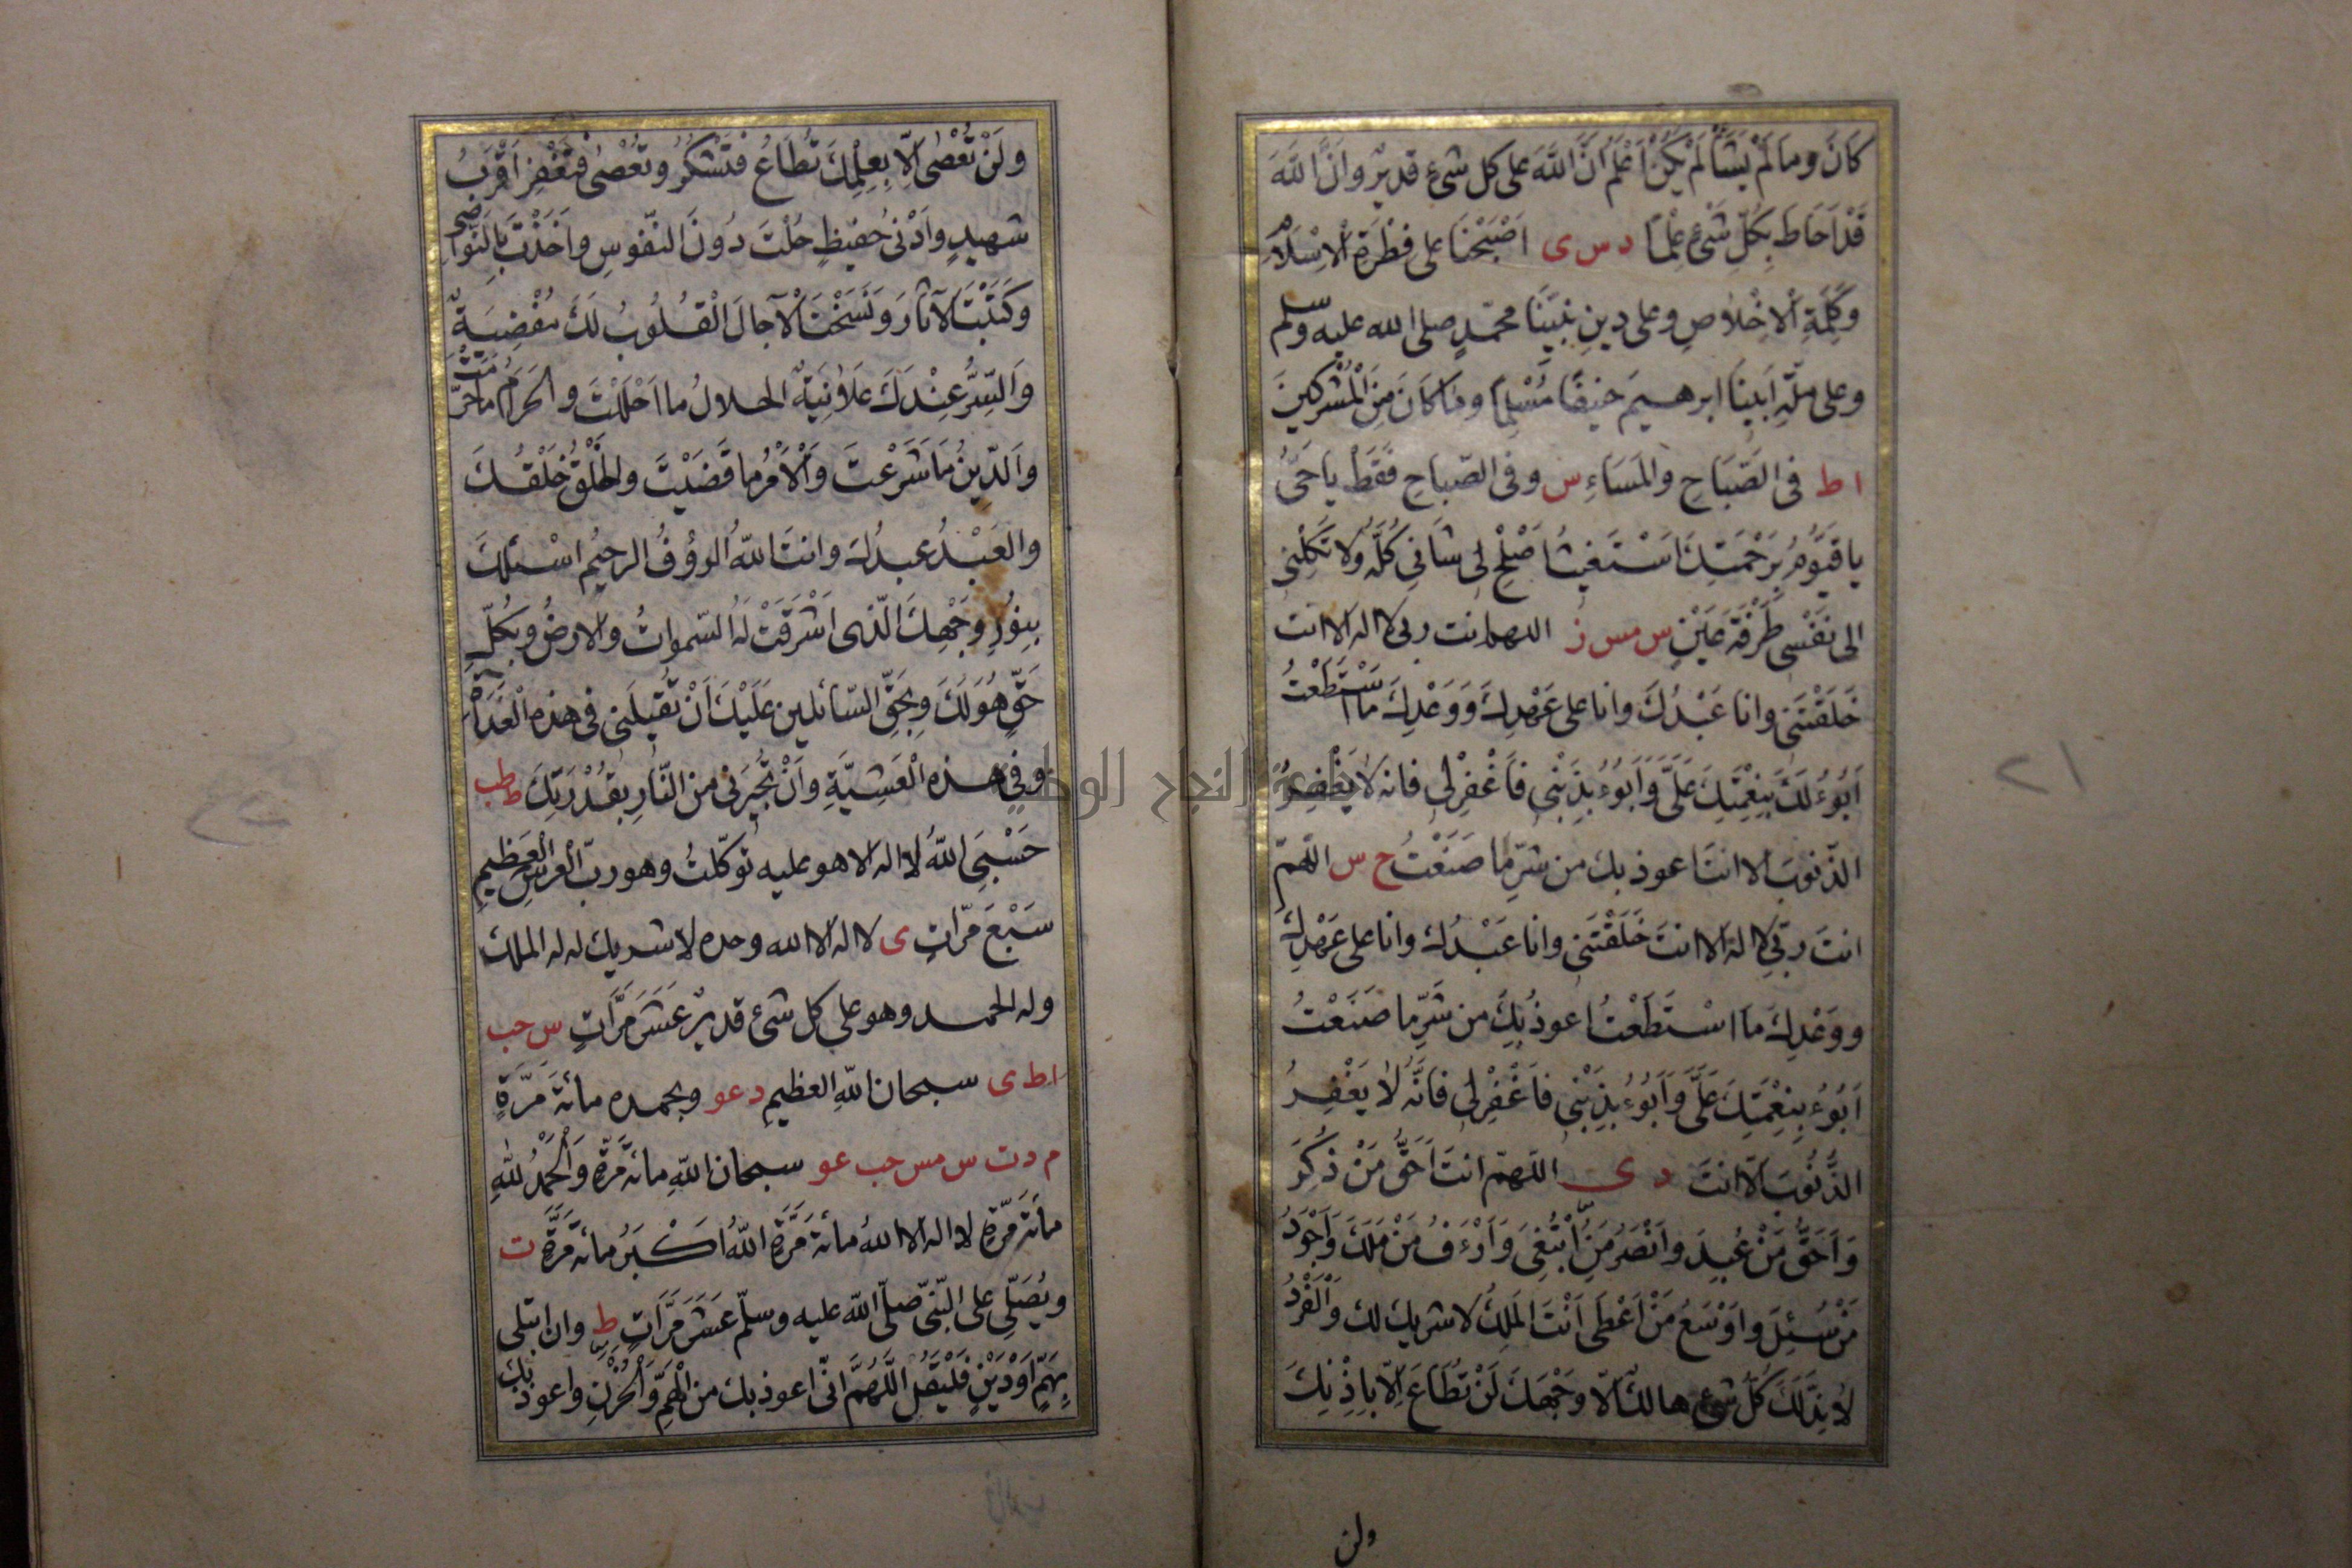 كَانَ وما لَمْ يَشَأْ لَمْ يَكُنْ اَعْلَمُ اَنَّ اللَّهَ على كل شئ قديرٌ واَنَّ اللَّهَ
قَدْ اَحَاطَ بِكُلِّ شَئْ عِلْمًا د س ى اَصْبَحْنَا على فِطْرَةِ الْاِسْلَامِ
وَكَلِمَةِ الْاِخْلَاصِ وعلى دِينِ نَبِيِّنَا محمّدٍ صلى الله عليه وسلم
وعلى مِلَّةِ اَبِينَا ابرهيمَ حَنِيفًا مُسْلِمًا وما كَانَ مِنَ الْمُشْرِكِينَ
ا ط فى الصَّبَاحِ والمَسَاءِ س وفى الصّباحِ فَقَطْ يا حَىُّ
يا قَيُّومُ بِرَحْمَتِكَ اَسْتَغِيثُ اَصْلِحْ لى شَانِى كُلَّهُ ولا تَكِلْنِى
الى نَفْسِى طَرْفَةَ عَيْنٍ س مس ز اللهم انت ربى لا اله الا انت
خَلَقْتَنِى وانا عَبْدُكَ وانا على عَهْدِكَ وَوَعْدِكَ ما اسْتَطَعْتُ
اَبُوءُ لَكَ بِنِعْمَتِكَ عَلَىَّ وَاَبُوءُ بِذَنْبِى فَاغْفِرْلِى فانه لا يَغْفِرُ
الذّنوبَ الا انتَ اعوذ بك من شَرِّ ما صَنَعْتُ خ س اللّهمّ
انتَ ربّى لا اله الا انتَ خَلَقْتَنِى وانا عَبْدُكَ وانا على عَهْدِكَ
ووَعْدِكَ ما اسْتَطَعْتُ اعوذُ بِكَ من شَرِّ ما صَنَعْتُ
اَبُوءُ بِنِعْمَتِكَ عَلَىَّ وَاَبُوءُ بِذَنْبِى فَاغْفِرْلِى فانَّهُ لا يَغْفِرُ
الذُّنُوبَ اِلّا انتَ د ى اللّهمّ انتَ اَحَقُّ مَنْ ذُكِرَ
وَاَحَقُّ مَنْ عُبِدَ واَنْصَرُ مَنِ ابْتُغِىَ وَاَرْءَفُ مَنْ مَلَكَ وَاَجْوَدُ
مَنْ سُئِلَ واَوْسَعُ مَنْ اَعْطَى اَنْتَ المَلِكُ لا شريك لك وَالْفَرْدُ
لا نِدَّ لَكَ كُلُّ شئ هالك الّا وَجْهَكَ لَنْ تُطَاعَ اِلّا بِاِذْنِكَ
ولن
٢١
ولَنْ تُعْصٰى اِلّا بِعِلْمِكَ تُطَاعُ فتَشْكُرُ وتُعْصٰى فتَغْفِرُ اَقْرَبُ
شهيدٍ واَدْنٰى حَفِيظٍ حُلْتَ دُونَ النّفوسِ واَخَذْتَ بِالنَّوَاصِى
وكَتَبْتَ الْآثارَ ونَسَخْتَ الْآجالَ الْقُلُوبُ لَكَ مُفْضِيَةٌ
وَالسِّرُّ عِنْدَكَ عَلَانِيَةٌ الحلالُ ما اَحْلَلْتَ والحَرَامُ ما حَرَّمْتَ
وَالدِّينُ مَا شَرَعْتَ وَالْاَمْرُ ما قَضَيْتَ والْخَلْقُ خَلْقُكَ
والعَبْدُ عبدُك وانتَ اللّهُ الرؤُفُ الرحيمُ اسْئلكَ
بِنُورِ وَجْهِكَ الّذى اَشْرَقَتْ لَهُ السّمواتُ والارضُ وبِكُلِّ
حَقٍّ هُوَ لَكَ وبِحَقِّ السّائلين عَلَيْكَ اَنْ تُقِيلَنِى فى هذه الْغَدَاةِ
وفى هذه الْعَشِيَّةِ واَنْ تُجِيرَنِى من النّارِ بِقُدْرَتِكَ ط طب
حَسْبِىَ اللّهُ لا اله الا هو عليه توكّلتُ وهو ربّ الْعرشِ الْعَظيمِ
سَبْعَ مَرّاتٍ ى لا اله الا الله وحده لا شريك له له الملك
وله الحمد وهو على كل شئ قديرٌ عَشَرَ مَرَّاتٍ س حب
ا ط ى سبحان اللّهِ العظيمِ د عو وبحمده مائةَ مَرّةٍ
م د ت س مس حب عو سبحان اللّهِ مائةَ مَرّةٍ وَالْحَمْدُ لِلّهِ
مائةَ مَرّةٍ لا اله الا اللهُ مائةَ مَرَّةٍ اللّهُ اَكْبَرُ مائةَ مَرَّةٍ ت
ويُصَلِّى على النّبىّ صلّى اللّه عليه وسلّم عَشَرَ مَرَّاتٍ ط وان ابتلى
بِهَمٍّ اَوْ دَيْنٍ فَلْيَقُلْ اللَّهُمَّ انّى اعوذ بك من الْهَمِّ وَالْحُزْنِ واعوذ بك